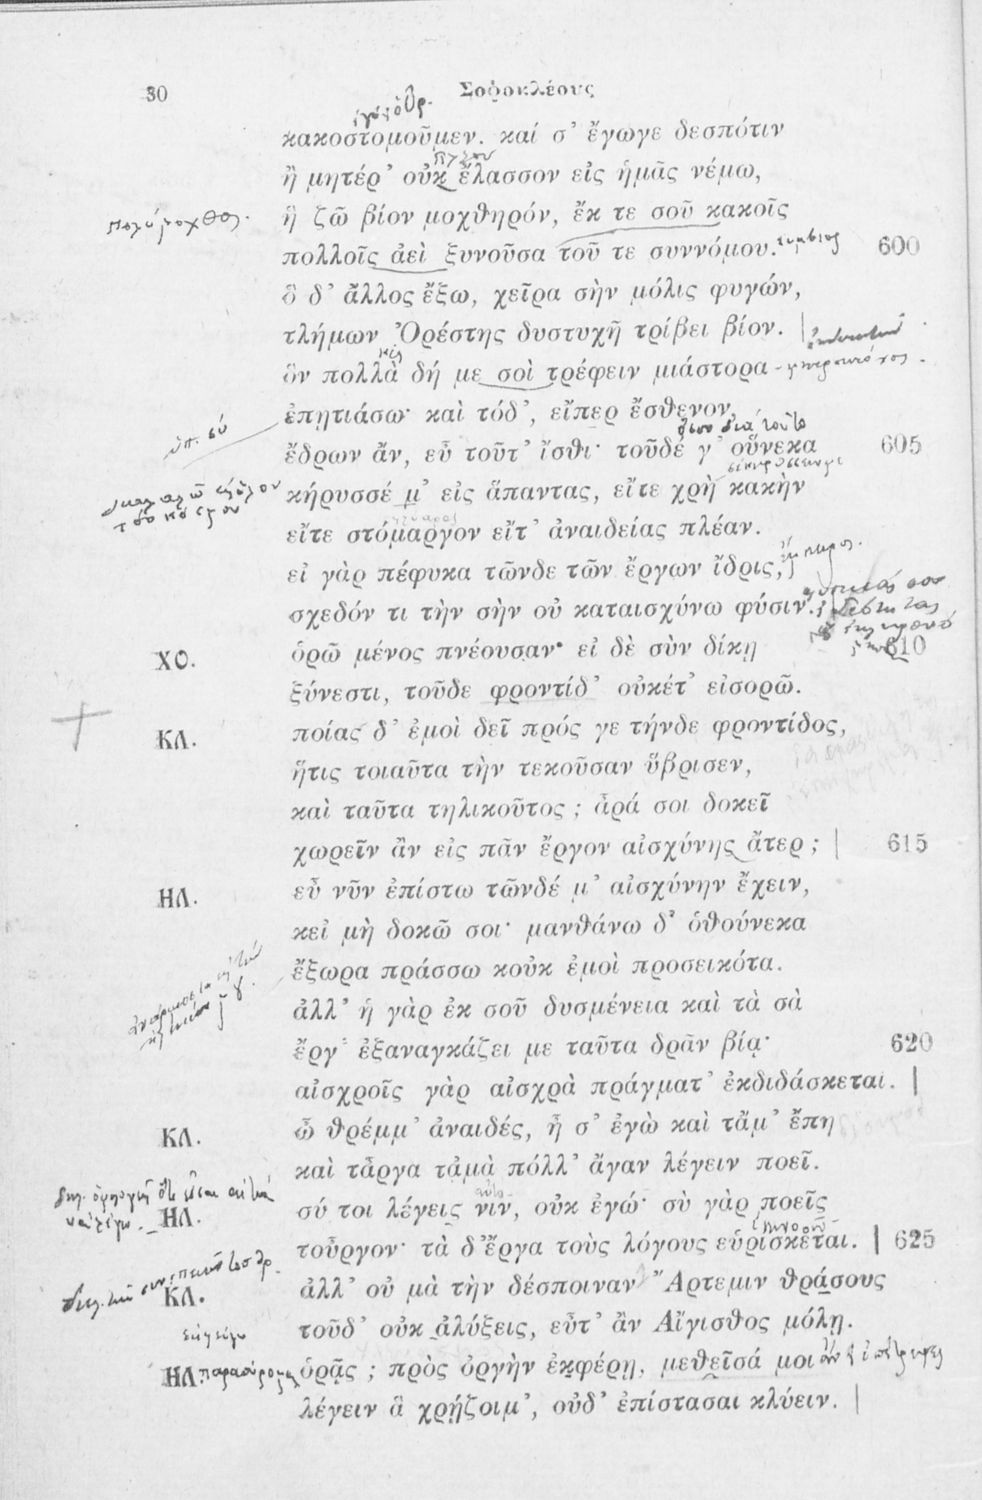 30
Σοφοκλέους
κακοστομοῦμεν. καί σ' ἔγωγε δεσπότιν
ἢ μητέρ' οὐκ ἔλασσον εἰς ἡμᾶς νέμω,
ἣ ζῶ βίον μοχθηρόν, ἔκ τε σοῦ κακοῖς
πολλοῖς ἀεὶ ξυνοῦσα τοῦ τε συννόμου. 600
ὃ δ' ἄλλος ἔξω, χεῖρα σὴν μόλις φυγών,
τλήμων Ὀρέστης δυστυχῆ τρίβει βίον.
ὃν πολλὰ δή με σοὶ τρέφειν μιάστορα
ἐπῃτιάσω· καὶ τόδ', εἴπερ ἔσθενον,
ἔδρων ἄν, εὖ τοῦτ' ἴσθι· τοῦδέ γ' οὕνεκα 605
κήρυσσέ μ' εἰς ἅπαντας, εἴτε χρὴ κακὴν
εἴτε στόμαργον εἴτ' ἀναιδείας πλέαν.
εἰ γὰρ πέφυκα τῶνδε τῶν ἔργων ἴδρις,
σχεδόν τι τὴν σὴν οὐ καταισχύνω φύσιν.
ΧΟ. ὁρῶ μένος πνέουσαν· εἰ δὲ σὺν δίκῃ 610
ξύνεστι, τοῦδε φροντίδ' οὐκέτ' εἰσορῶ.
ΚΛ. ποίας δ' ἐμοὶ δεῖ πρός γε τήνδε φροντίδος,
ἥτις τοιαῦτα τὴν τεκοῦσαν ὕβρισεν,
καὶ ταῦτα τηλικοῦτος; ἆρά σοι δοκεῖ
χωρεῖν ἂν εἰς πᾶν ἔργον αἰσχύνης ἄτερ; 615
ΗΛ. εὖ νῦν ἐπίστω τῶνδέ μ' αἰσχύνην ἔχειν,
κεἰ μὴ δοκῶ σοι· μανθάνω δ' ὁθούνεκα
ἔξωρα πράσσω κοὐκ ἐμοὶ προσεικότα.
ἀλλ' ἡ γὰρ ἐκ σοῦ δυσμένεια καὶ τὰ σὰ
ἔργ' ἐξαναγκάζει με ταῦτα δρᾶν βίᾳ· 620
αἰσχροῖς γὰρ αἰσχρὰ πράγματ' ἐκδιδάσκεται.
ΚΛ. ὦ θρέμμ' ἀναιδές, ἦ σ' ἐγὼ καὶ τἄμ' ἔπη
καὶ τἄργα τἀμὰ πόλλ' ἄγαν λέγειν ποεῖ.
ΗΛ. σύ τοι λέγεις νιν, οὐκ ἐγώ· σὺ γὰρ ποεῖς
τοὖργον· τὰ δ' ἔργα τοὺς λόγους εὑρίσκεται. 625
ΚΛ. ἀλλ' οὐ μὰ τὴν δέσποιναν Ἄρτεμιν θράσους
τοῦδ' οὐκ ἀλύξεις, εὖτ' ἂν Αἴγισθος μόλῃ.
ΗΛ. ὁρᾷς; πρὸς ὀργὴν ἐκφέρῃ, μεθεῖσά μοι
λέγειν ἃ χρῄζοιμ', οὐδ' ἐπίστασαι κλύειν.